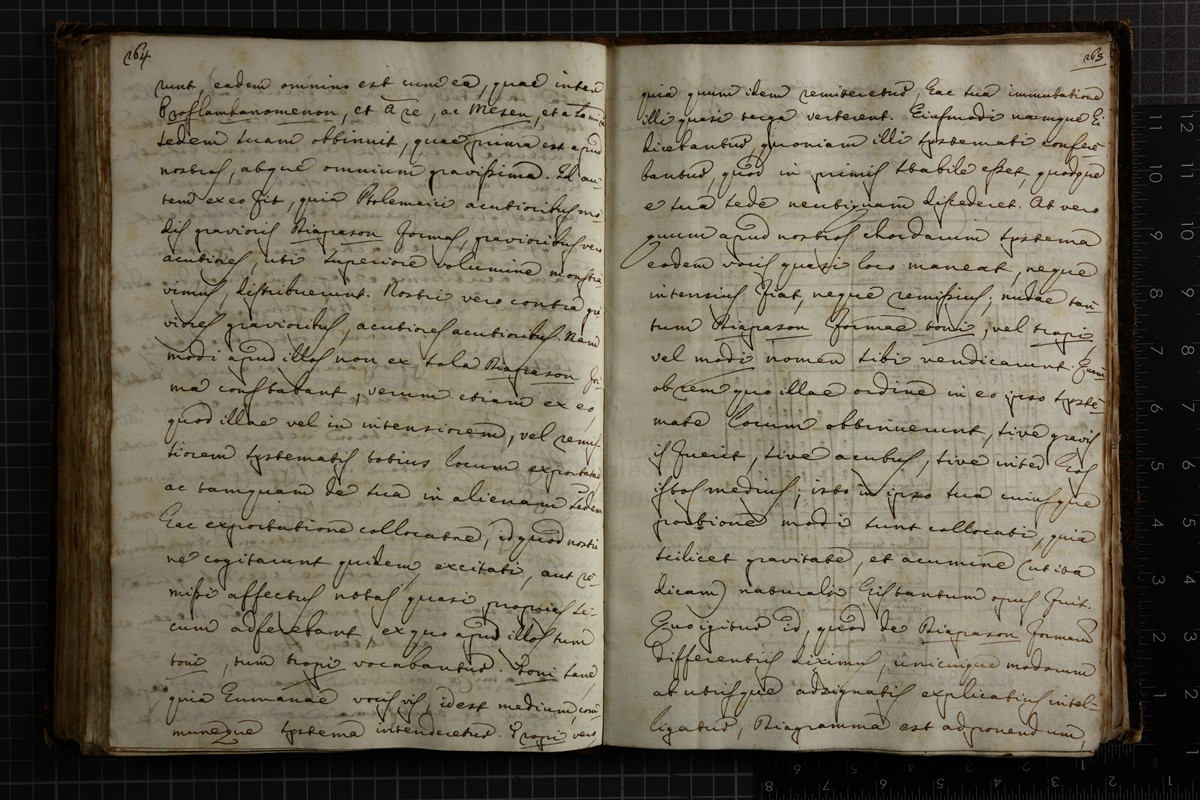 264
runt, eadem omnino est cum ea, quae inter
Proslambanomenon, et A re, ac Mesen, et a la mi re
sedem suam obtinuit, quae prima est apud
nostros, atque omnium gravissima. Id au-
tem ex eo fit, quia Ptolemaici acutioribus mo
dis gravioris Diapason formas, gravioribus vero
acutiores, ubi superiore volumine monstra
vimus, distribuerunt. Nostri vero contra gra
viores gravioribus, acutiores acutioribus. Nam
modi apud illos non ex sola Diapason for
ma constabant, verum etiam ex eo,
quod illae vel in intensiorem, vel remis-
siorem systematis totius locum exportatae
ac tamquam de sua in alienam sedem
hac exportatione collocatae, id quod nostri
ne cogitarunt quidem, excitati, aut re-
missi affectus notas quasi proprias se-
cum adferebant, ex quo apud illos tum
toni, tum tropi vocabantur. Toni sane
quia humanae vocis vis, idest medium, com-
muneque systema intenderetur. Tropi vero
265
quia quum idem remitteretur, hac sua immutatione
illi quasi terga verterent. Eiusmodi namque ii
dicebantur, quoniam illi systemati confere-
bantur, quod in primis stabile esset, quodque
e sua sede neutiquam discederet. At vero
quum apud nostros chordarum systema
eodem vocis quasi loco maneat, neque
intensius fiat, neque remissius; nudae tan-
tum Diapason formae toni, vel tropi,
vel modi nomen sibi vendicarunt. Quam
obrem quo illae ordine in eo ipso syste-
mate locum obtinuerunt, sive gravis
is fuerit, sive acutus, sive inter hos
istos medius; isto in ipso sua cuiusque
portione modi sunt collocati, quia
scilicet gravitate, et acumine (ut ita
dicam) naturali his tantum opus fuit.
Quo igitur id, quod de Diapason formarum
differentiis diximus, unicuique modorum
ab utrisque adsignatis explicatius intel-
ligatur, Diagramma est adponendum,